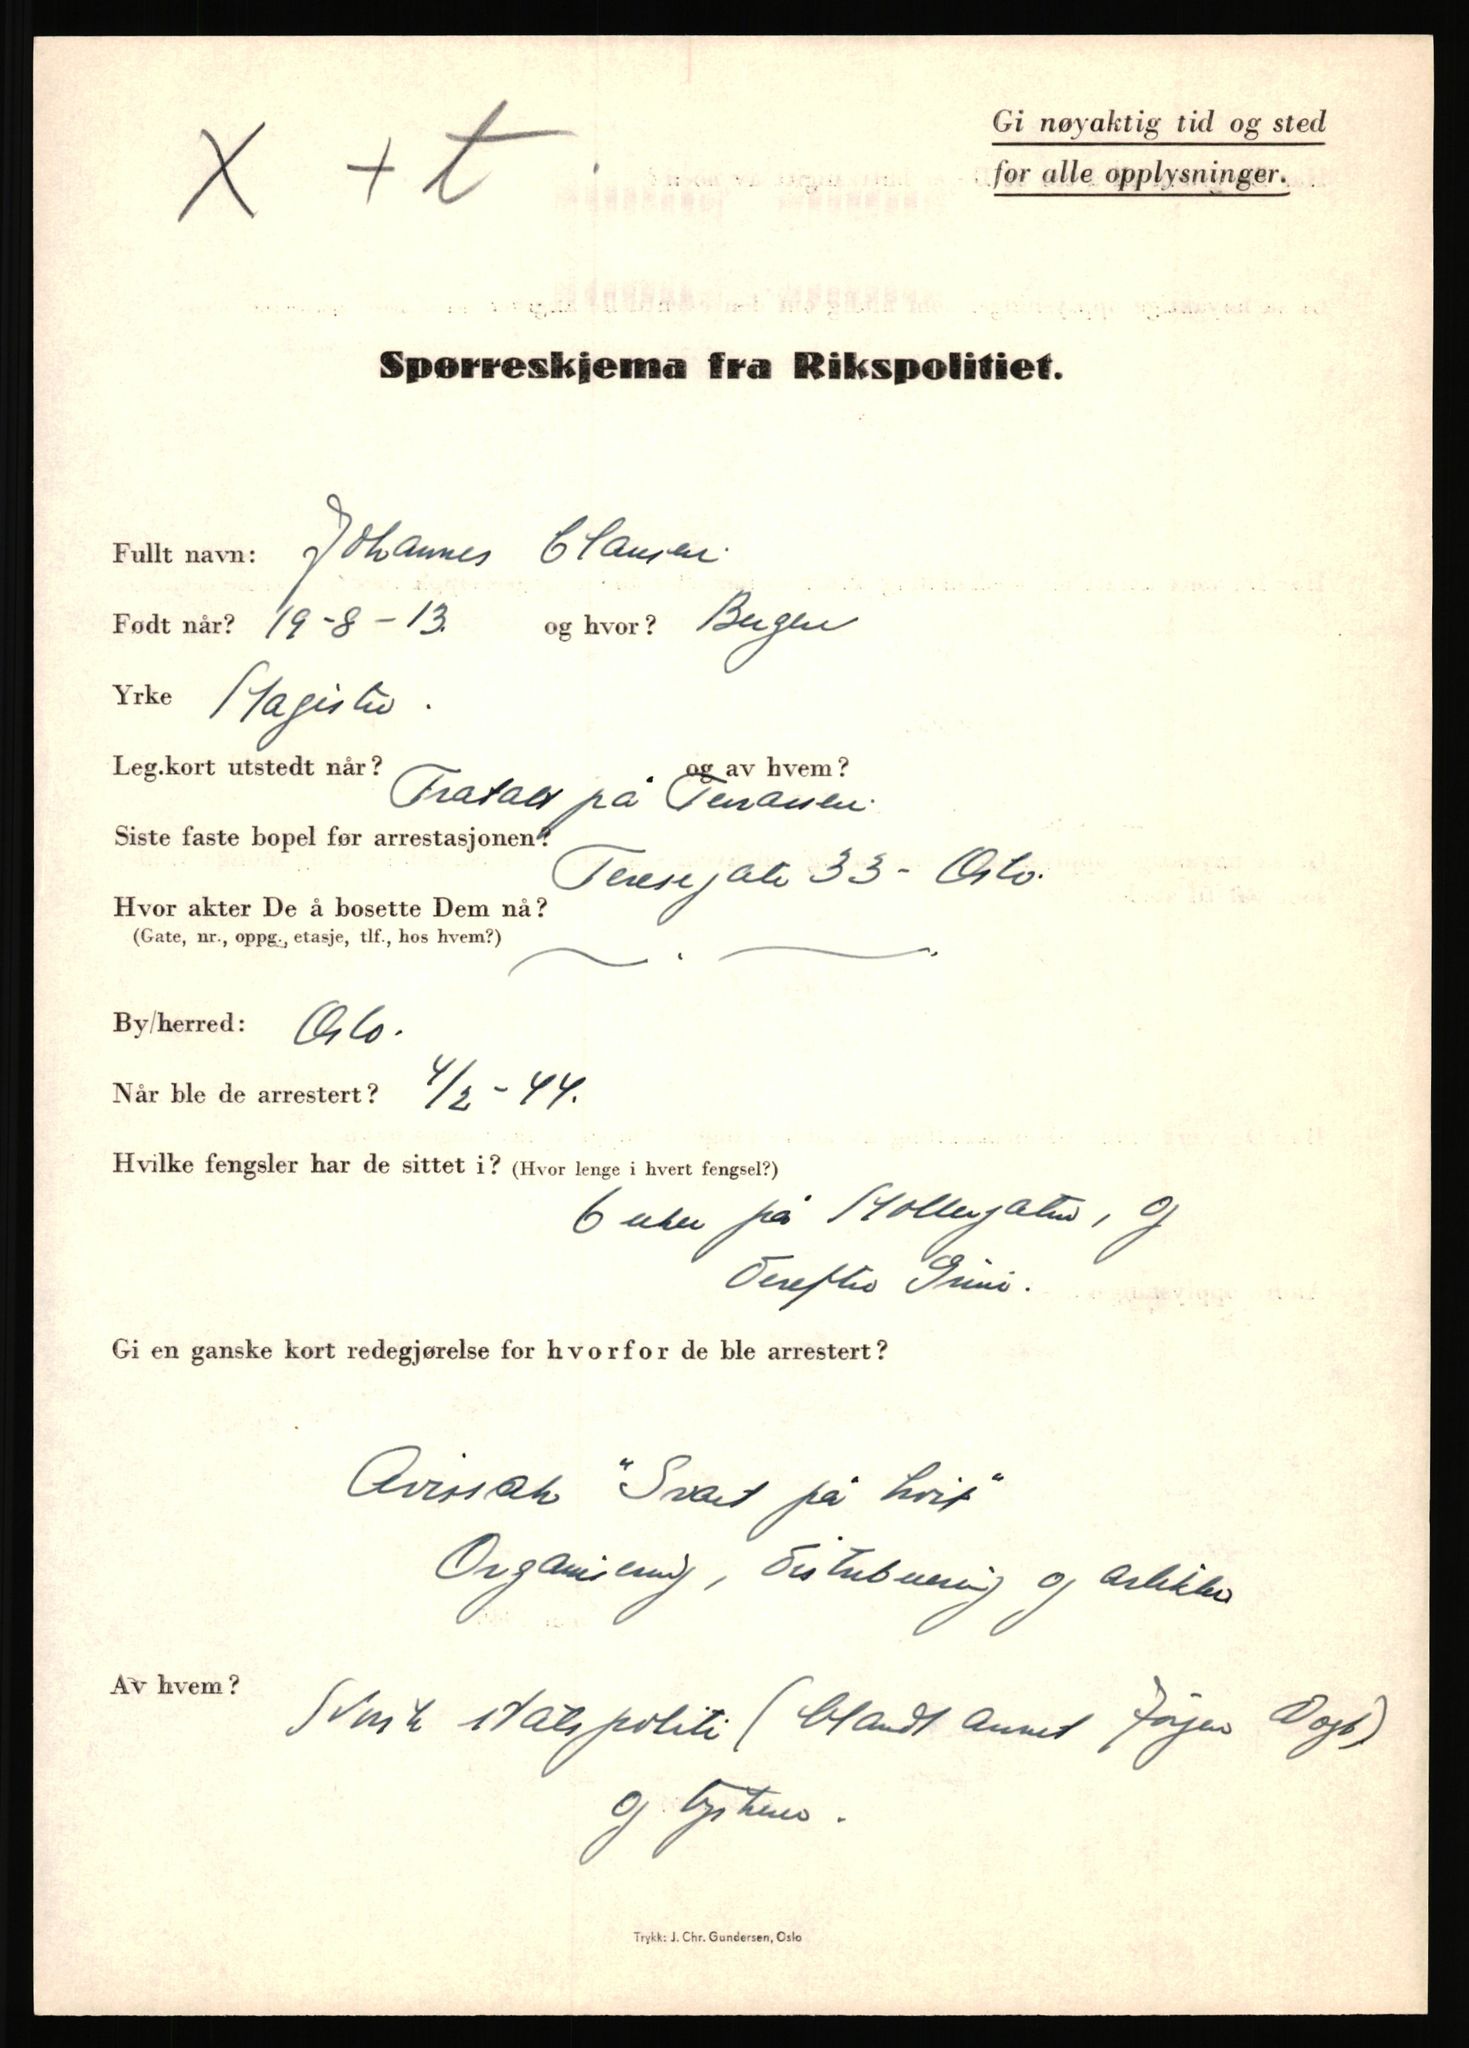 X + t .
Gi nøyaktig tid og sted
for alle opplysninger.
Spørreskjema fra Rikspolitiet.
Fullt navn: Johannes Clausen.
Født når? 19-8-13. og hvor? Bergen
Yrke Magister.
Leg.kort utstedt når? og av hvem?
Fratatt på Terrassen.
Siste faste bopel før arrestasjonen?
Teresegate 33 - Oslo.
Hvor akter De å bosette Dem nå?
(Gate, nr., oppg., etasje, tlf., hos hvem?)
By/herred: Oslo.
Når ble de arrestert? 4/2-44.
Hvilke fengsler har de sittet i? (Hvor lenge i hvert fengsel?)
6 uker på Møllergaten, og
derefter Grini.
Gi en ganske kort redegjørelse for hvorfor de ble arrestert?
Avissak "Svart på hvit"
Organisering, distribuering og artikler
Av hvem?
Norsk statspoliti (blandt annet Jørgen Vogt)
og tyskere.
Trykk: J. Chr. Gundersen, Oslo